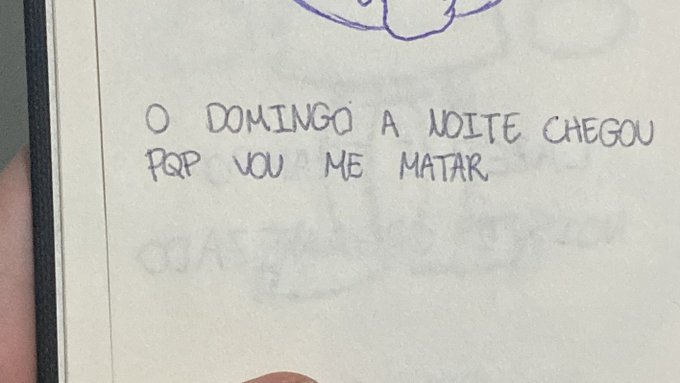 O DOMINGO A NOITE CHEGOU
PQP VOU ME MATAR